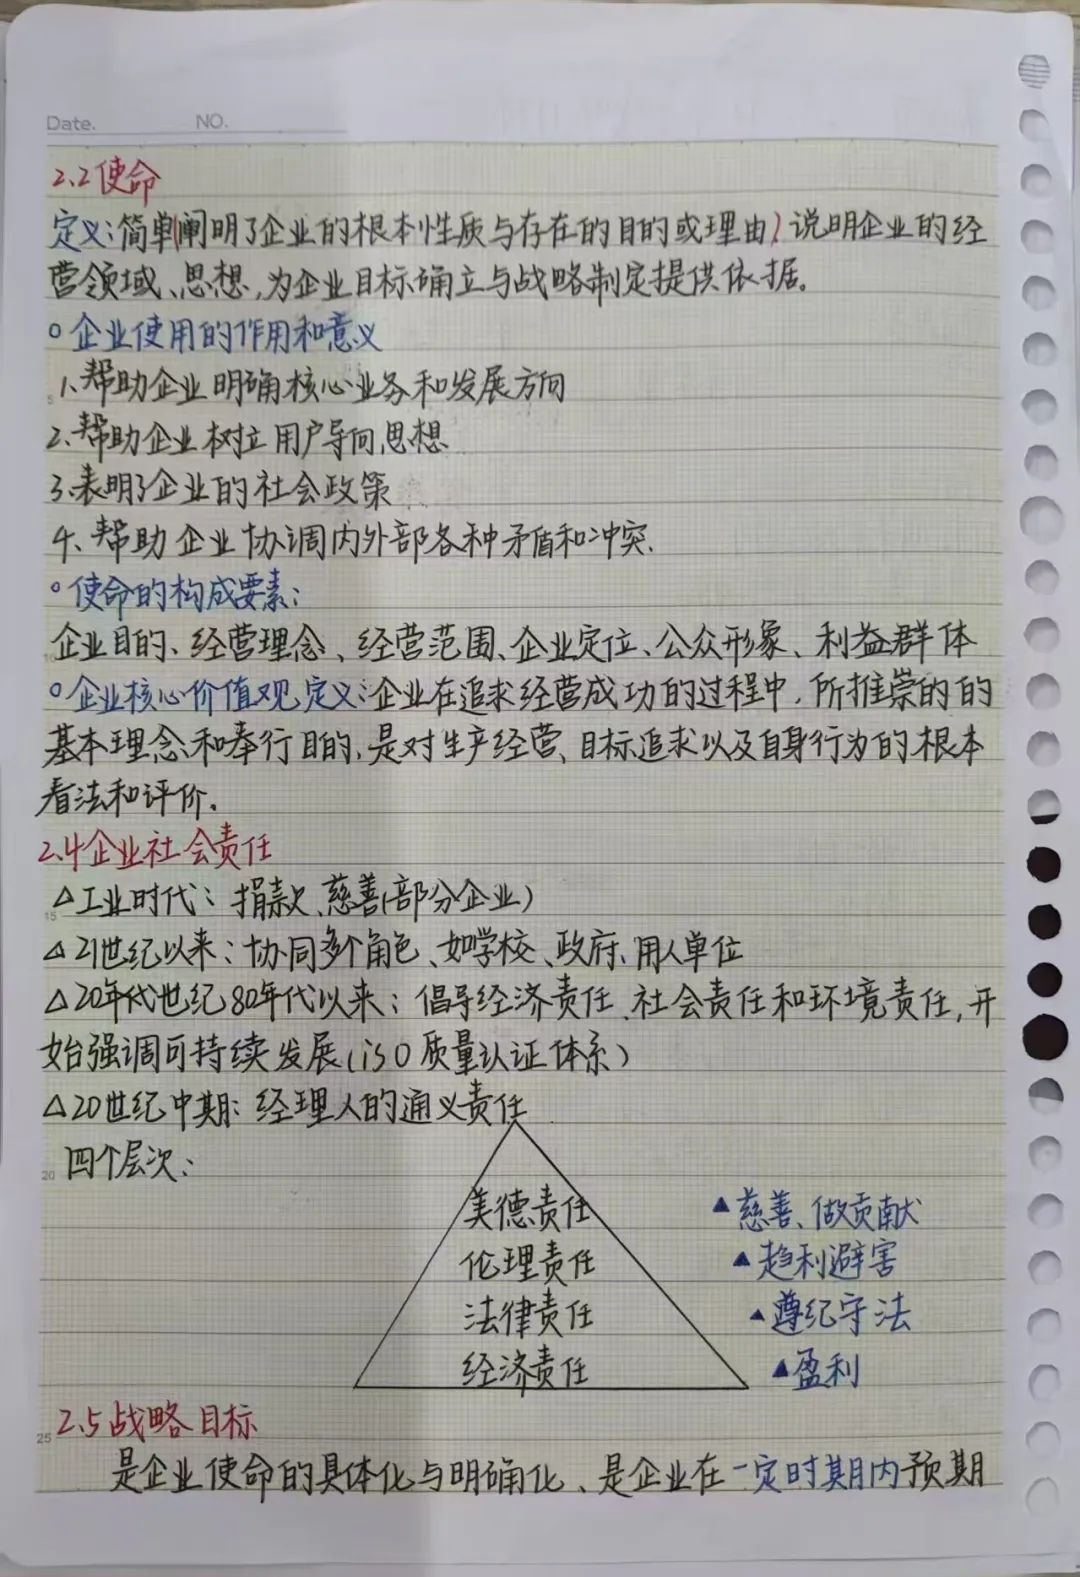 Date.
NO.
2.2使命
定义:简单阐明了企业的根本性质与存在的目的或理由,说明企业的经
营领域、思想,为企业目标确立与战略制定提供依据。
○企业使用的作用和意义
5
1、帮助企业明确核心业务和发展方向
2、帮助企业树立用户导向思想
3、表明了企业的社会政策
4、帮助企业协调内外部各种矛盾和冲突.
○使命的构成要素:
10
企业目的、经营理念、经营范围、企业定位、公众形象、利益群体
○企业核心价值观定义:企业在追求经营成功的过程中,所推崇的的
基本理念和奉行目的,是对生产经营、目标追求以及自身行为的根本
看法和评价.
2.4企业社会责任
15
△工业时代:捐款、慈善(部分企业)
△21世纪以来:协同多个角色、如学校、政府、用人单位
△20年代世纪80年代以来:倡导经济责任、社会责任和环境责任,开
始强调可持续发展(iSO质量认证体系)
△20世纪中期:经理人的通义责任
20
四个层次:
美德责任 ▲慈善、做贡献
伦理责任 ▲趋利避害
法律责任 ▲遵纪守法
经济责任 ▲盈利
25
2.5战略目标
是企业使命的具体化与明确化、是企业在一定时期内预期